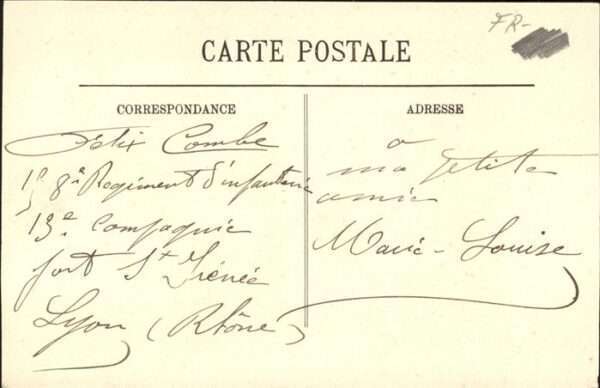 FR-
CARTE POSTALE
CORRESPONDANCE
Félix Combe
158e Regiment d'infanterie
13e Compagnie
fort St Irénée
Lyon (Rhône)
ADRESSE
a
ma petite
amie
Marie-Louise